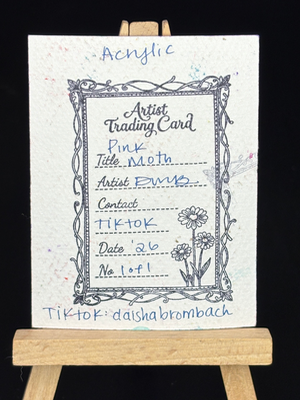 Acrylic
Artist
Trading Card
Pink
Title Moth
Artist DMB
Contact
TikTok
Date '26
No 1 of 1
TikTok: daishabrombach